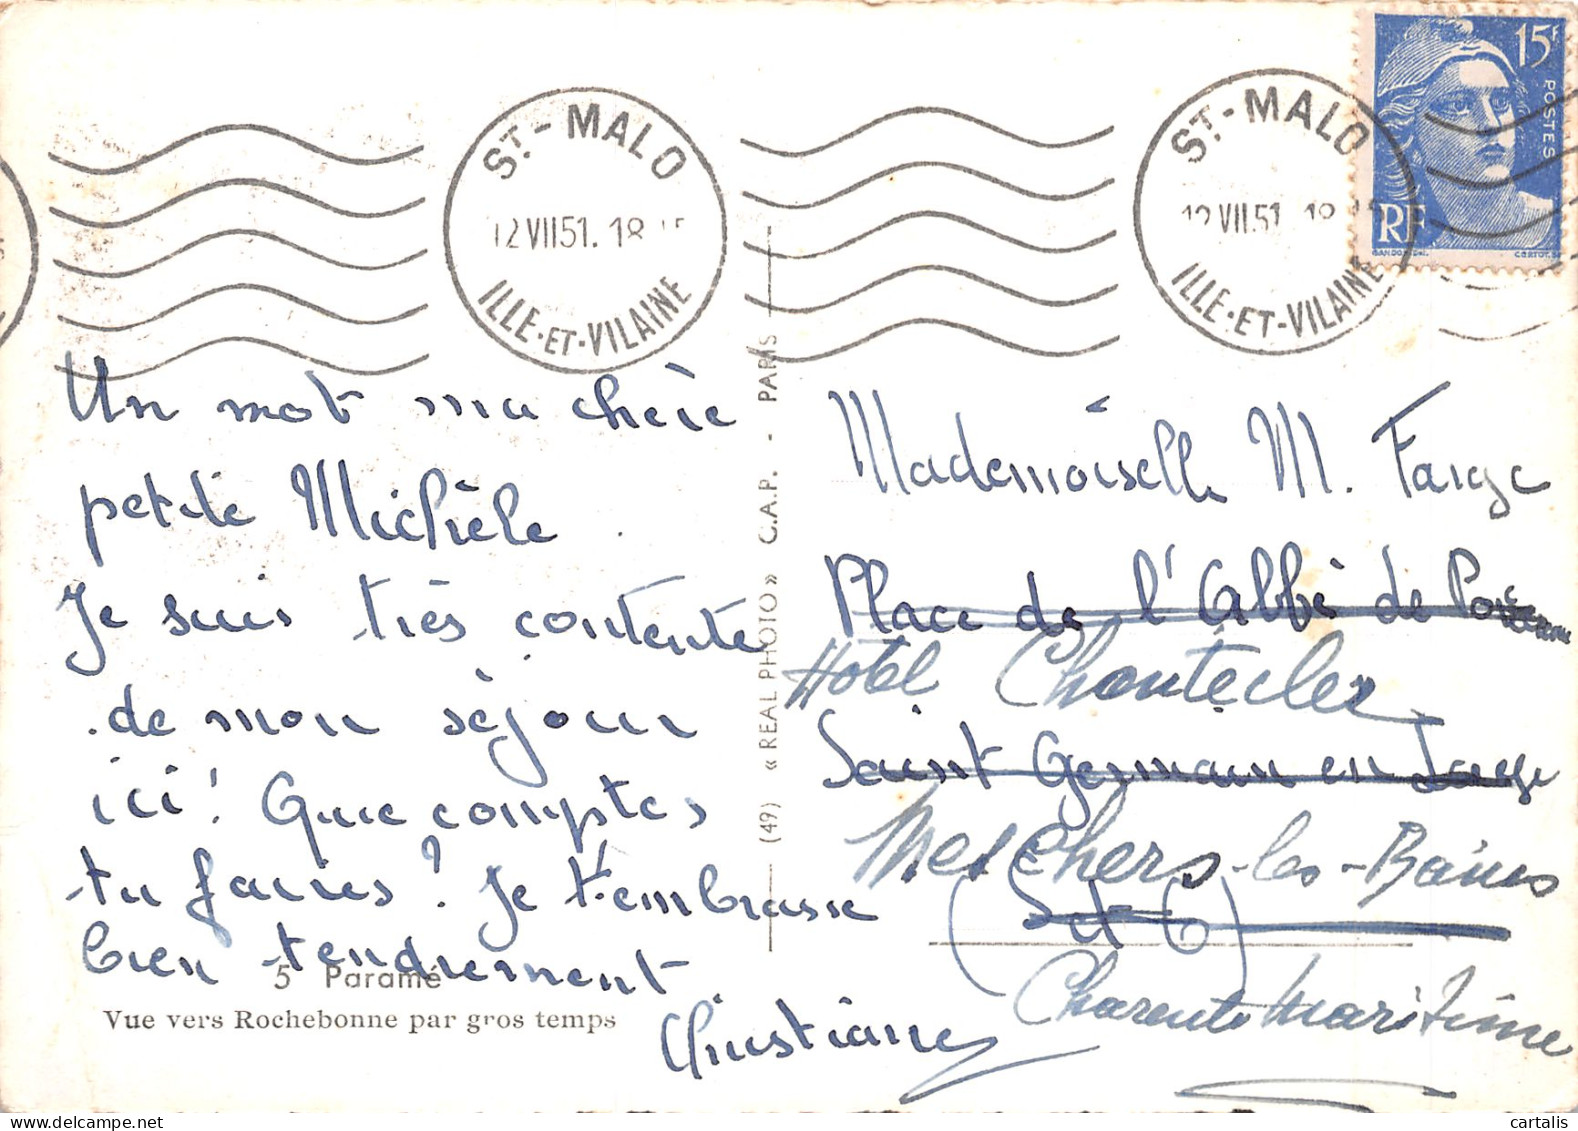 ST-MALO
12 VII 51. 18
ILLE-ET-VILAINE
ST-MALO
12 VII 51. 18
ILLE-ET-VILAINE
15F
POSTES
RF
Un mot ma chère
petite Michèle.
Je suis très contente
de mon séjour
ici! Que comptes
tu faires? Je t'embrasse
bien tendrement
Christiane
5 Paramé
Vue vers Rochebonne par gros temps
(49) « REAL PHOTO » C.A.P. - PARIS
Mademoiselle M. Farge
Place de l'Abbé de
Hôtel Chantecler
Saint Germain en Laye
Meschers-les-Bains
(S et O)
Charente Maritime
cartalis